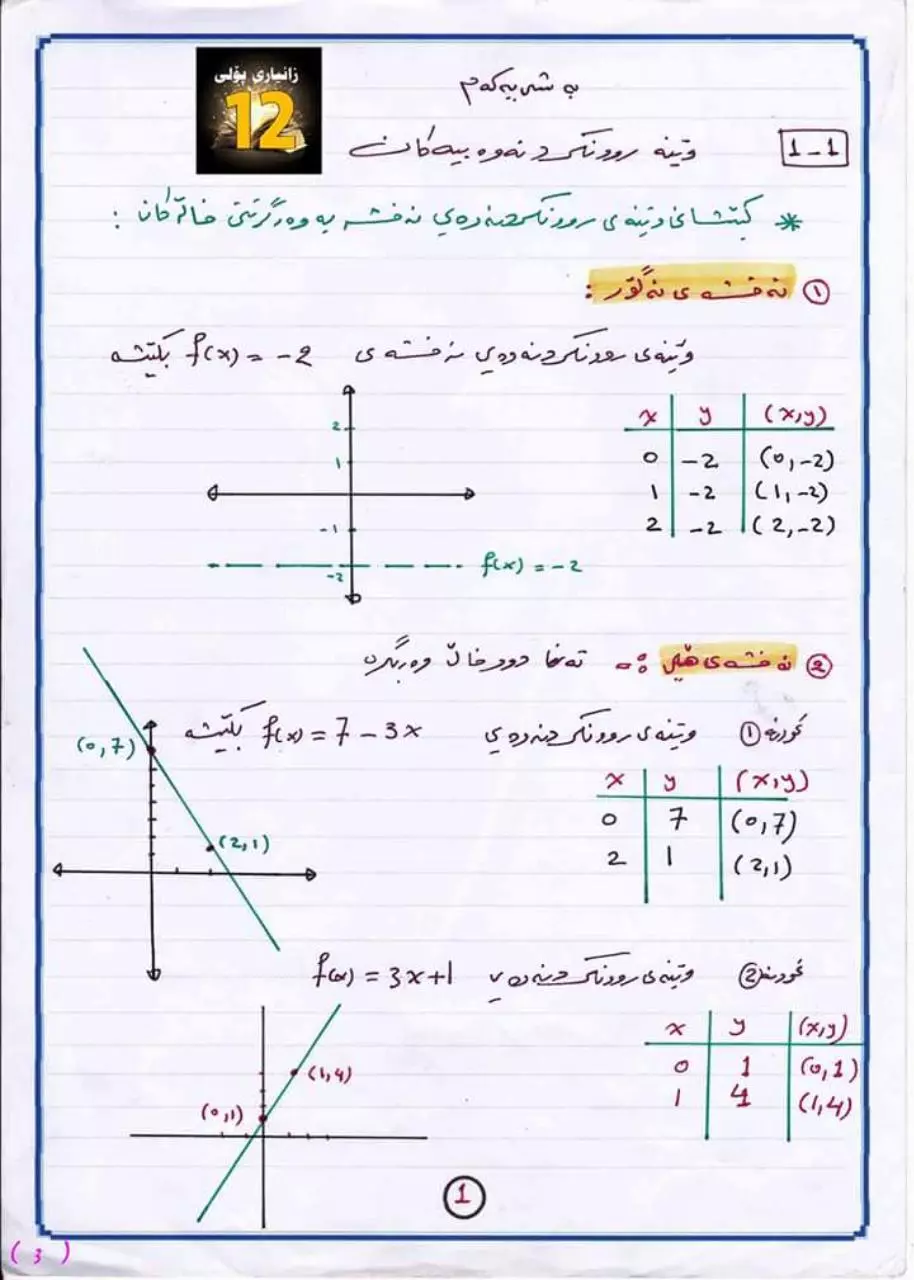 زانیاری پۆلی
12
بەشی یەکەم
1-1 وێنە روونکردنەوەییەکان
* کێشانی وێنەی روونکردنەوەی نەخشە بە وەرگرتنی خاڵەکان :
① نەخشەی نەگۆر :
وێنەی روونکردنەوەی نەخشەی f(x) = -2 بکێشە
x y (x,y)
0 -2 (0,-2)
1 -2 (1,-2)
2 -2 (2,-2)
2
1
-1
-2
f(x) = -2
② نەخشەی هێڵی :- تەنها دوو خاڵ وەربگرە
نموونە ① وێنەی روونکردنەوەی f(x) = 7 - 3x بکێشە
x y (x,y)
0 7 (0,7)
2 1 (2,1)
(0,7)
(2,1)
نموونە ② وێنەی روونکردنەوەی f(x) = 3x+1
x y (x,y)
0 1 (0,1)
1 4 (1,4)
(1,4)
(0,1)
1
(3)